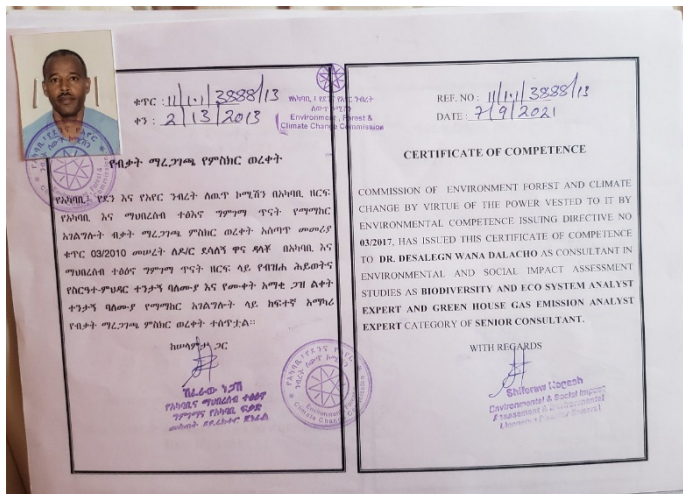 ቁጥር : 11/10.1/3888/13
ቀን : 2/13/2013
የብቃት ማረጋገጫ የምስክር ወረቀት
የአካባቢ፣ የደን እና የአየር ንብረት ለውጥ ኮሚሽን በአካባቢ ዘርፍ
የአካባቢ እና ማህበረሰብ ተፅእኖ ግምገማ ጥናት የማማከር
አገልግሎት ብቃት ማረጋገጫ ምስክር ወረቀት አሰጣጥ መመሪያ
ቁጥር 03/2010 መሠረት ለዶ/ር ደሳለኝ ዋና ዳላቾ በአካባቢ እና
ማህበረሰብ ተፅዕኖ ግምገማ ጥናት ዘርፍ ላይ የብዝሐ ሕይወትና
የስርዓተ-ምህዳር ተንታኝ ባለሙያ እና የሙቀት አማቂ ጋዝ ልቀት
ተንታኝ ባለሙያ የማማከር አገልግሎት ላይ ከፍተኛ አማካሪ
የብቃት ማረጋገጫ ምስክር ወረቀት ተሰጥቷል።
ከሠላምታ ጋር
ሽፈራው ነጋሽ
የአካባቢና ማህበረሰብ ተፅዕኖ
ግምገማና የአካባቢ ፍቃድ
Environment, Forest &
Climate Change Commission
REF. NO : 11/10.1/3888/13
DATE : 7/9/2021
CERTIFICATE OF COMPETENCE
COMMISSION OF ENVIRONMENT FOREST AND CLIMATE
CHANGE BY VIRTUE OF THE POWER VESTED TO IT BY
ENVIRONMENTAL COMPETENCE ISSUING DIRECTIVE NO
03/2017, HAS ISSUED THIS CERTIFICATE OF COMPETENCE
TO DR. DESALEGN WANA DALACHO AS CONSULTANT IN
ENVIRONMENTAL AND SOCIAL IMPACT ASSESSMENT
STUDIES AS BIODIVERSITY AND ECO SYSTEM ANALYST
EXPERT AND GREEN HOUSE GAS EMISSION ANALYST
EXPERT CATEGORY OF SENIOR CONSULTANT.
WITH REGARDS
Shiferaw Negash
Environmental & Social Impact